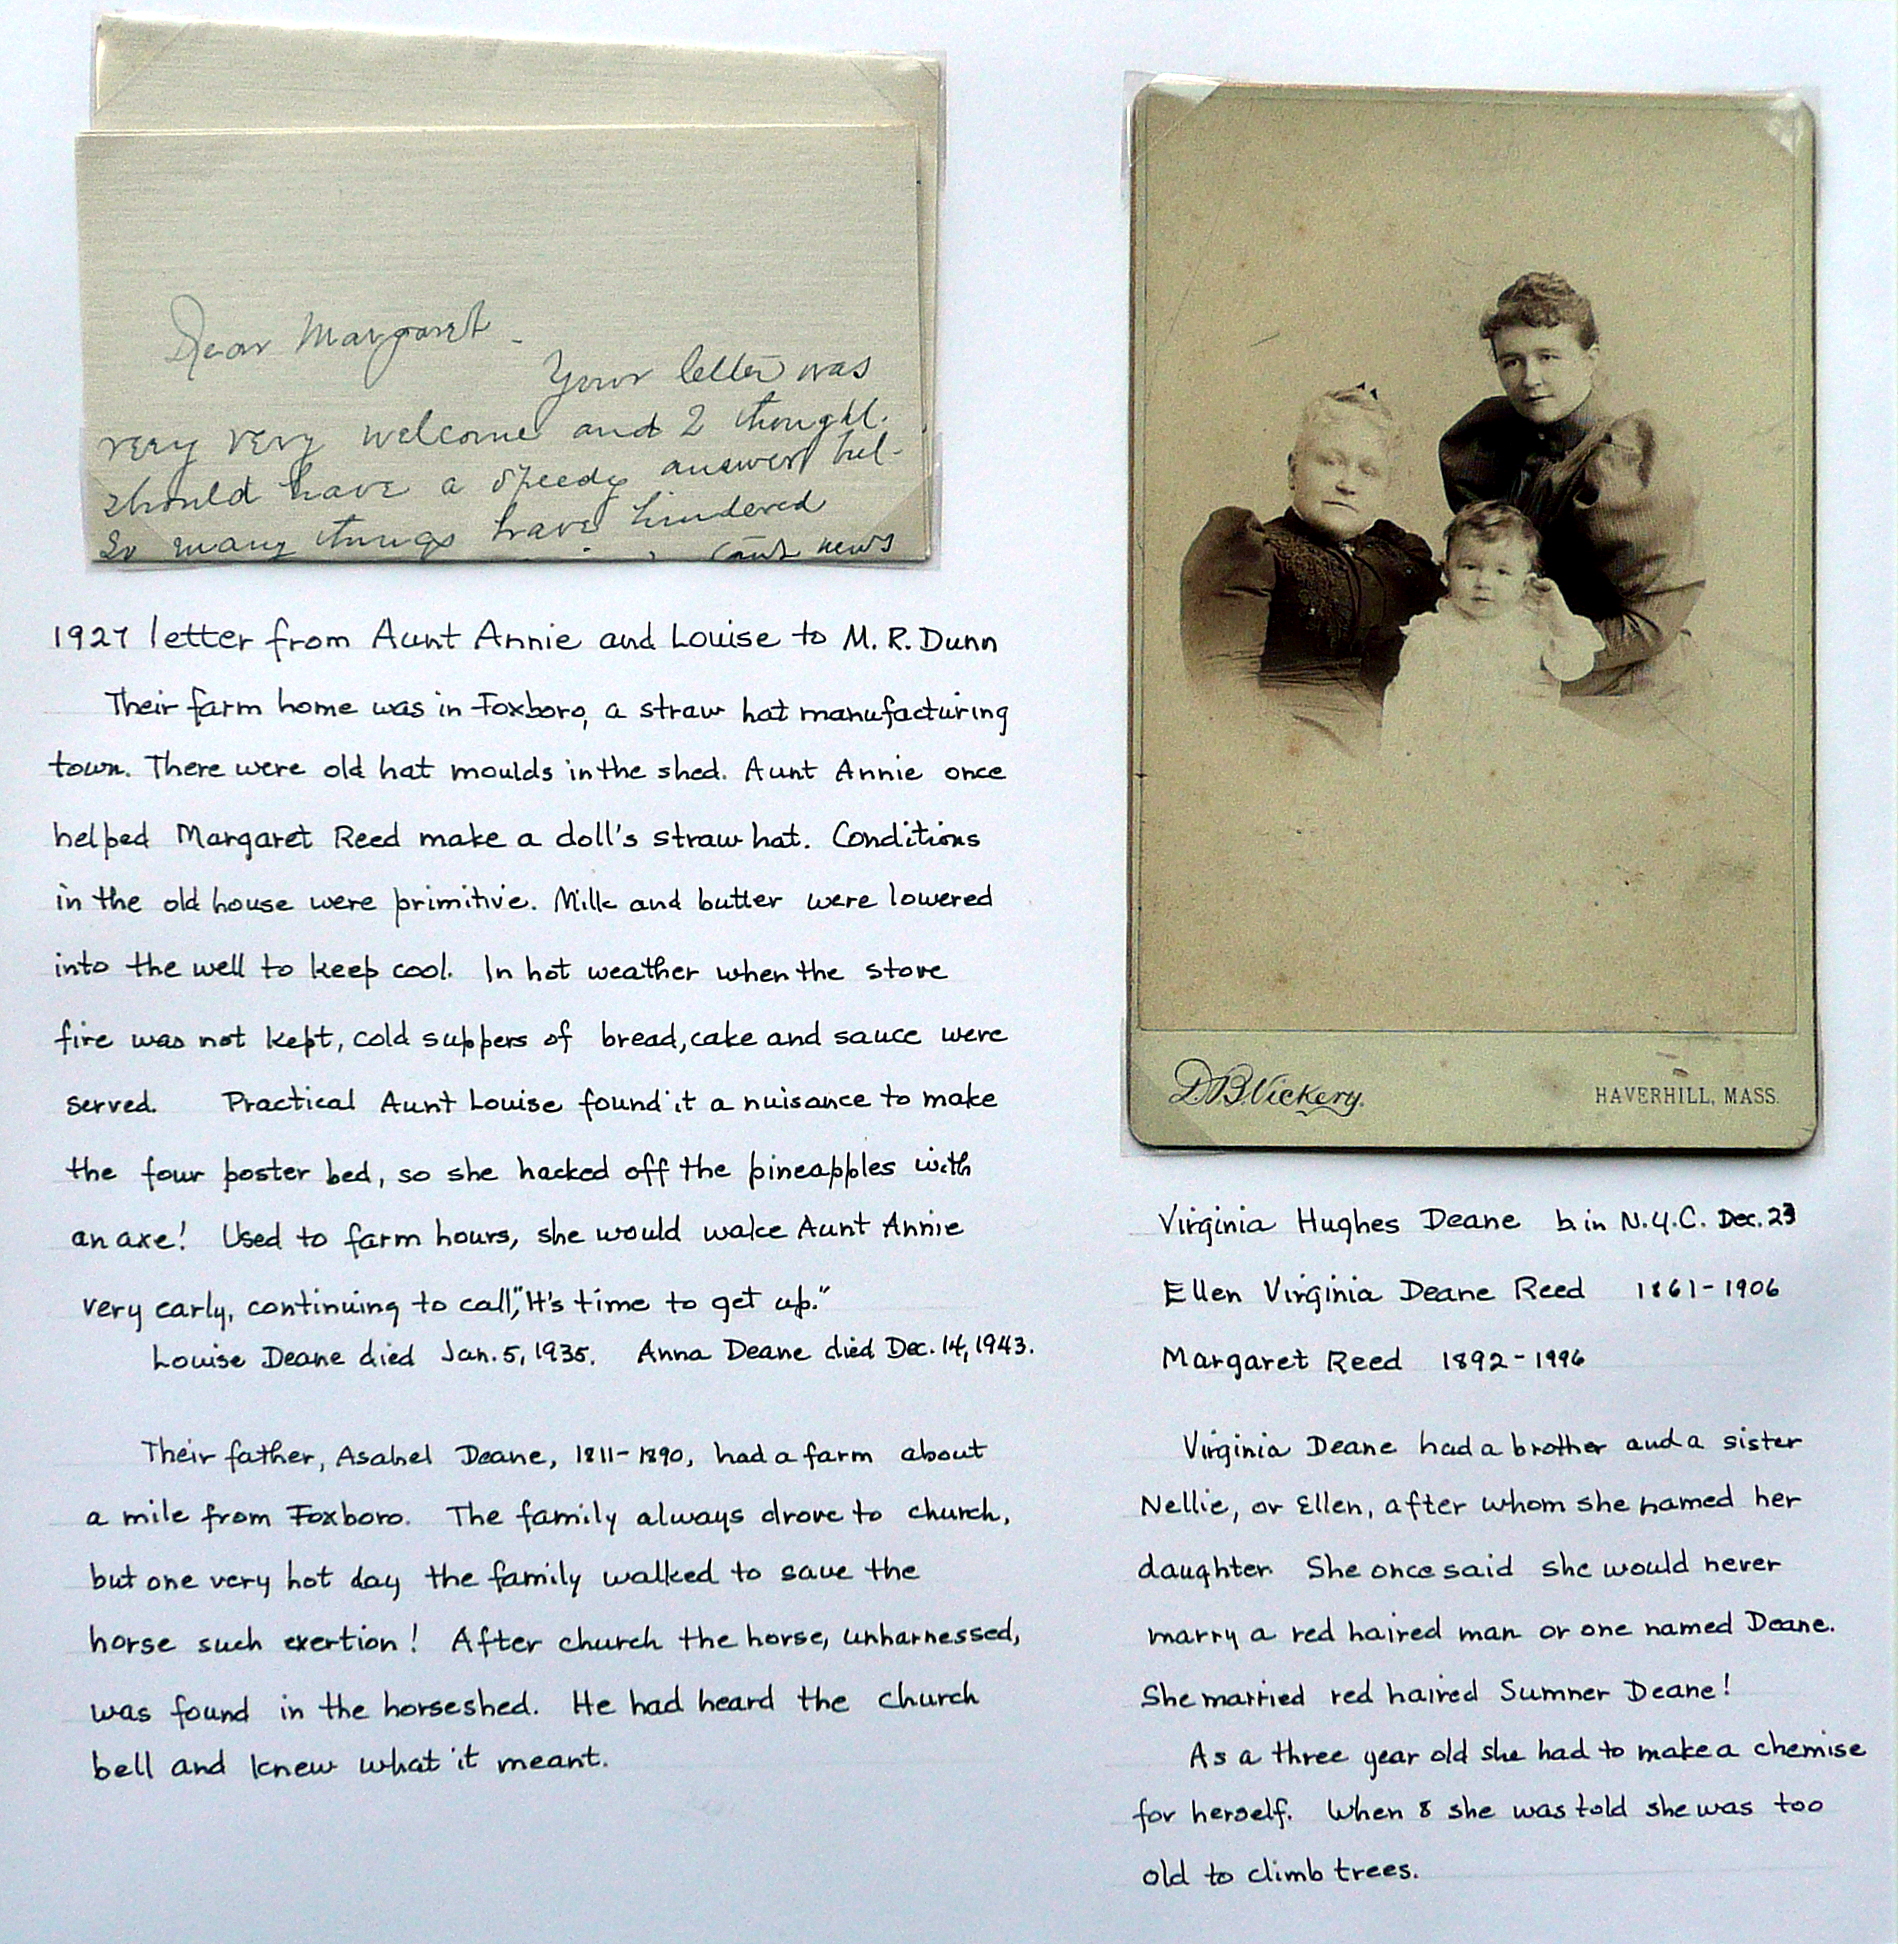 Dear Margaret -
Your letter was
very very welcome and I thought
should have a speedy answer but -
So many things have hindered
news
1927 letter from Aunt Annie and Louise to M. R. Dunn
Their farm home was in Foxboro, a straw hat manufacturing
town. There were old hat moulds in the shed. Aunt Annie once
helped Margaret Reed make a doll's straw hat. Conditions
in the old house were primitive. Milk and butter were lowered
into the well to keep cool. In hot weather when the stove
fire was not kept, cold suppers of bread, cake and sauce were
served. Practical Aunt Louise found it a nuisance to make
the four poster bed, so she hacked off the pineapples with
an axe! Used to farm hours, she would wake Aunt Annie
very early, continuing to call, "It's time to get up."
Louise Deane died Jan. 5, 1935. Anna Deane died Dec. 14, 1943.
Their father, Asahel Deane, 1811-1890, had a farm about
a mile from Foxboro. The family always drove to church,
but one very hot day the family walked to save the
horse such exertion! After church the horse, unharnessed,
was found in the horseshed. He had heard the church
bell and knew what it meant.
D. B. Vickery.
HAVERHILL, MASS.
Virginia Hughes Deane b. in N.Y.C. Dec. 23
Ellen Virginia Deane Reed 1861-1906
Margaret Reed 1892-1996
Virginia Deane had a brother and a sister
Nellie, or Ellen, after whom she named her
daughter. She once said she would never
marry a red haired man or one named Deane.
She married red haired Sumner Deane!
As a three year old she had to make a chemise
for herself. When 8 she was told she was too
old to climb trees.